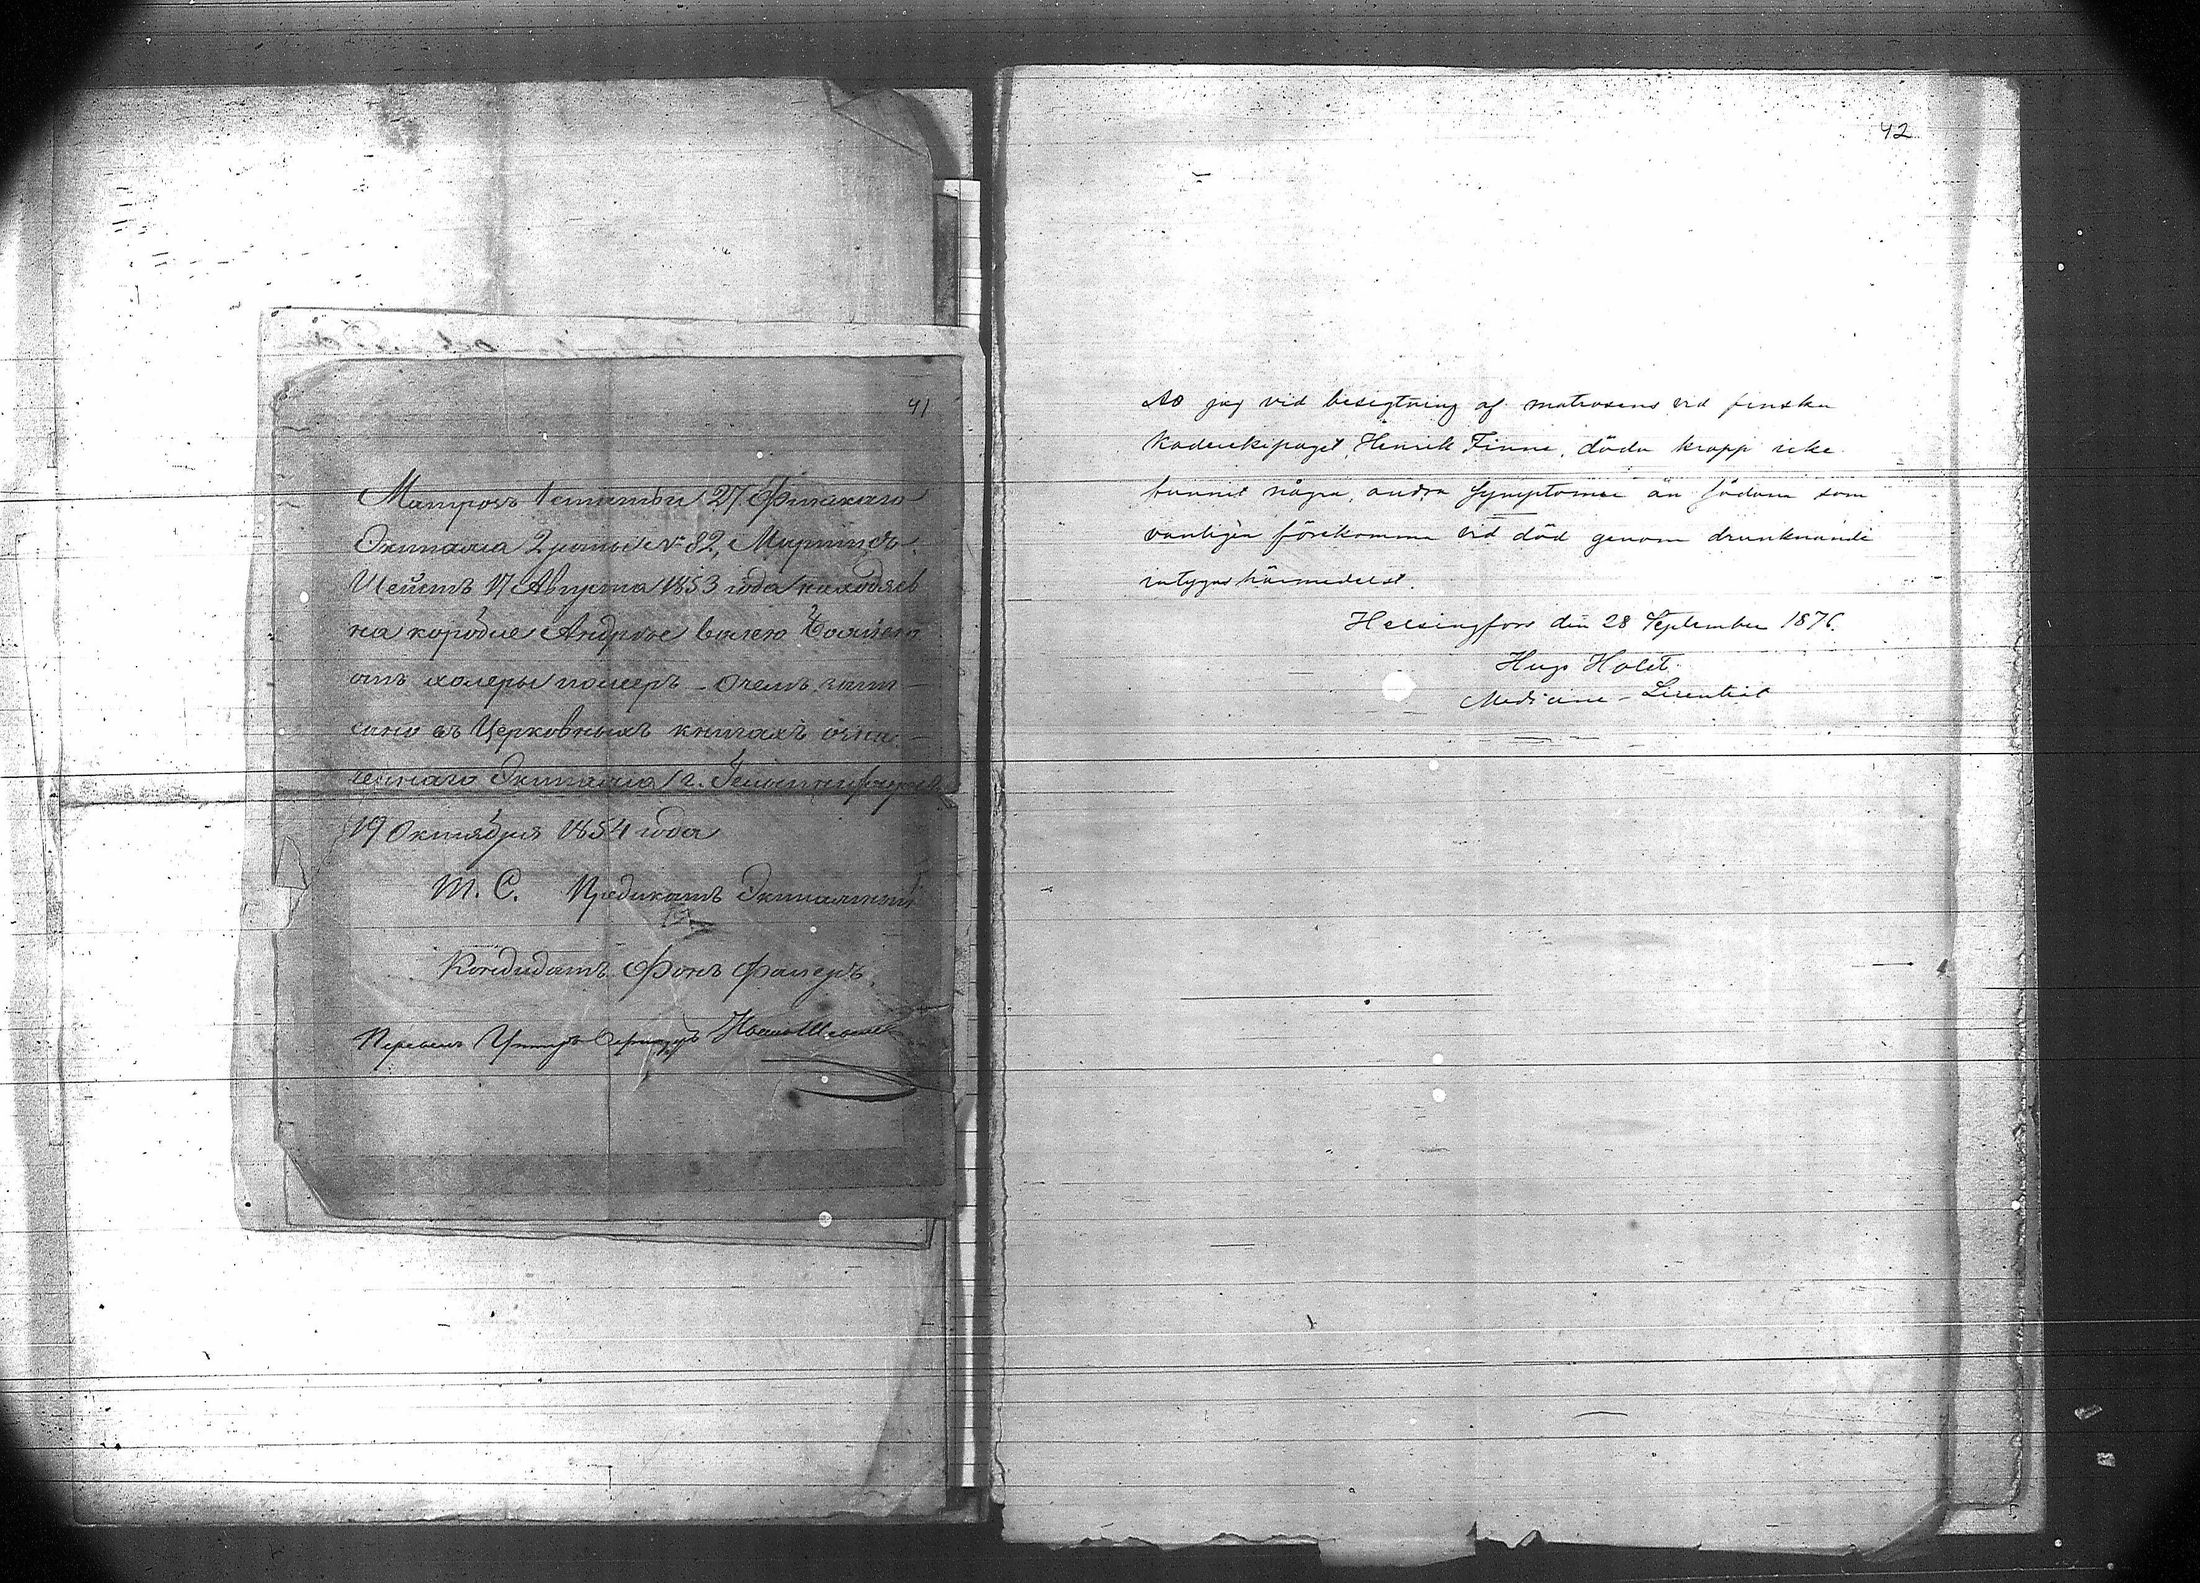 41
Матросъ 1 статьи 27 Финскаго
Экипажа 2 роты № 82, Мартинъ
17 Августа 1853 года находясь
на корабле Андрее волею Божiею
отъ холеры померъ – О чемъ запи-
сано въ Церковныхъ книгахъ озна-
ченнаго Экипажа, г. Гельсингфорсъ
19 Октября 1854 года
М. С. Предикатъ Экипажный
Кондидатъ Фонъ
Перевелъ Унтеръ Офицеръ
42
At jag vid besigtning af matrosens vid finska
Kaderekipaget, Henrik Finne, döda kropp icke
funnit några andra symptomer än sådana som
vanligen förekomma vid död genom drunknande
intygas härmedelst.
Helsingfors den 28 September 1876.
Hugo Holst
Medicine-Licentiat